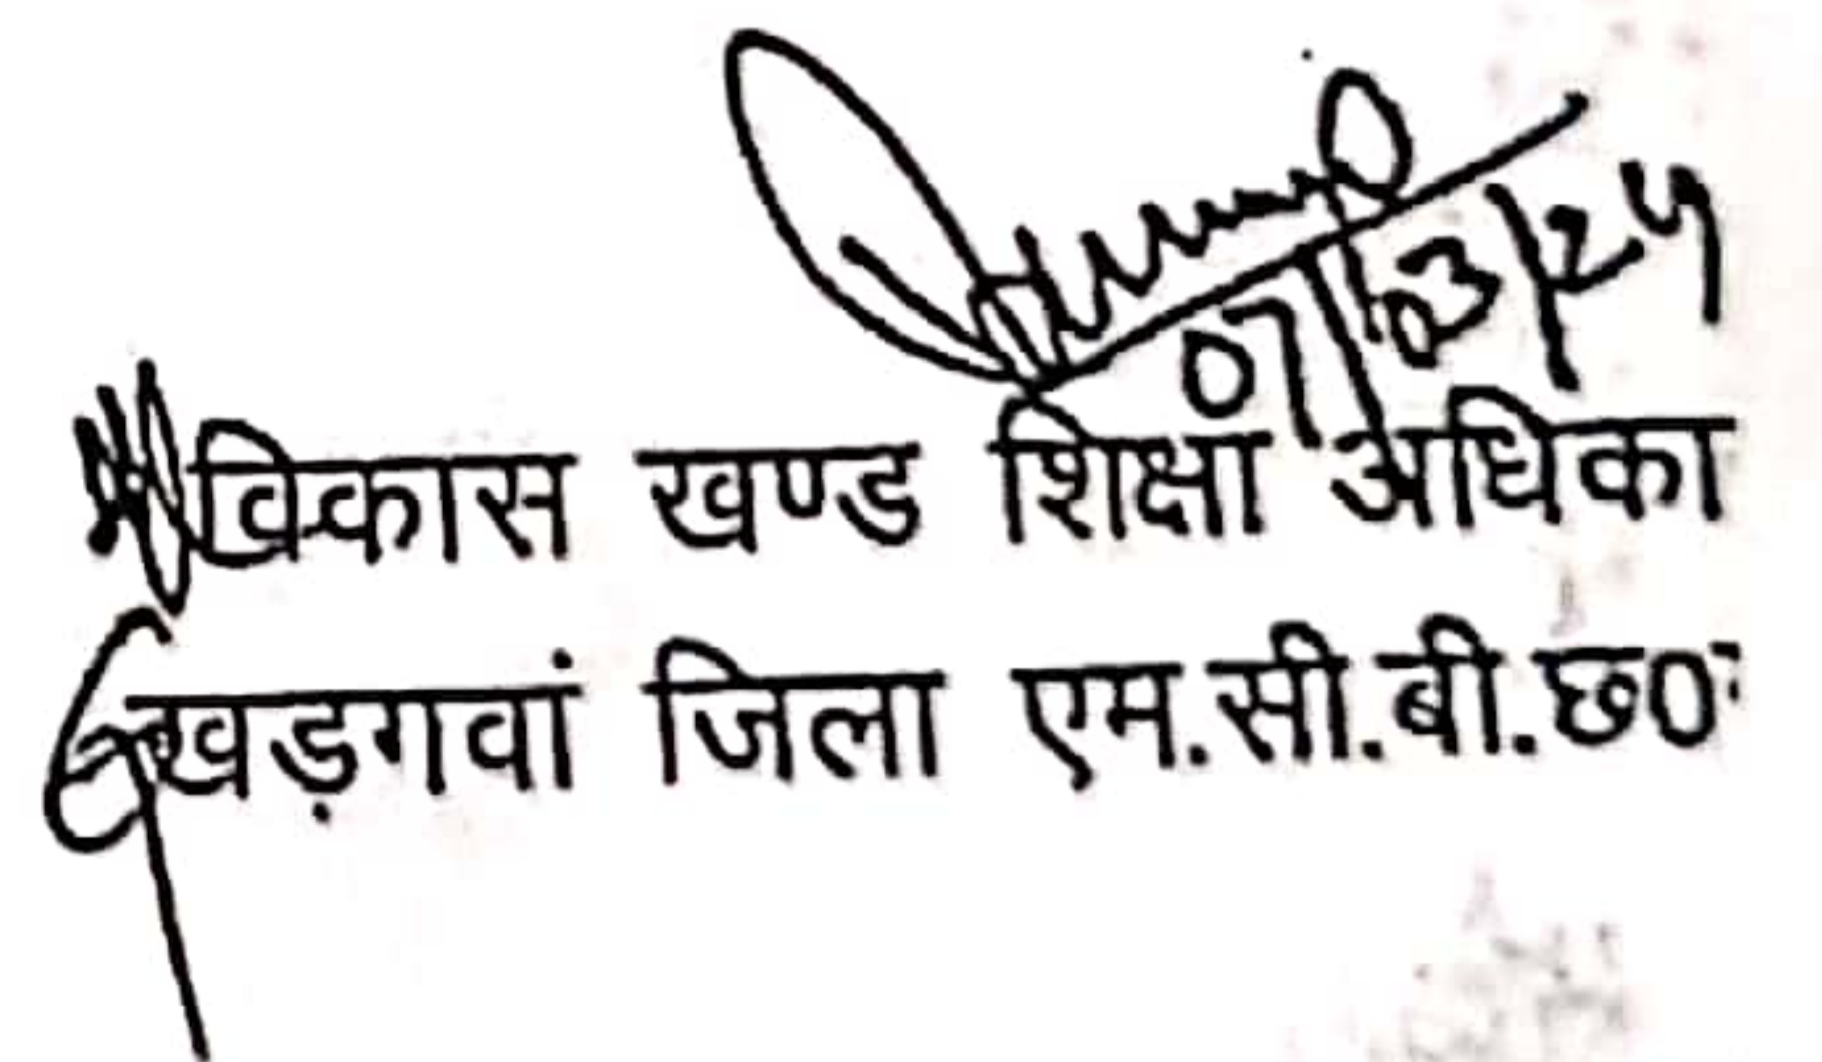 07/03/24
विकास खण्ड शिक्षा अधिका
खड़गवां जिला एम.सी.बी.छ0